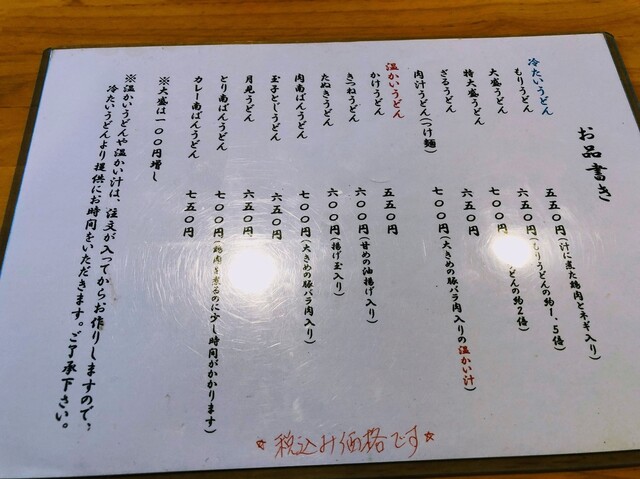 お品書き
冷たいうどん
もりうどん 五五〇円(汁に煮た鶏肉とネギ入り)
大盛うどん 六五〇円(もりうどんの約1、5倍)
特大盛うどん 七〇〇円 うどんの約2倍)
ざるうどん 六五〇円
肉汁うどん(つけ麺) 七〇〇円(大きめの豚バラ肉入りの温かい汁)
温かいうどん
かけうどん 五五〇円
きつねうどん 六〇〇円(甘めの油揚げ入り)
たぬきうどん 六〇〇円(揚げ玉入り)
肉南ばんうどん 七〇〇円(大きめの豚バラ肉入り)
玉子とじうどん 六五〇円
月見うどん 六五〇円
とり南ばんうどん 七〇〇円(鶏肉を煮るのに少し時間がかかります)
カレー南ばんうどん 七五〇円
※大盛は一〇〇円増し
※温かいうどんや温かい汁は、注文が入ってからお作りしますので、
冷たいうどんより提供にお時間をいただきます。ご了承下さい。
☆税込み価格です☆